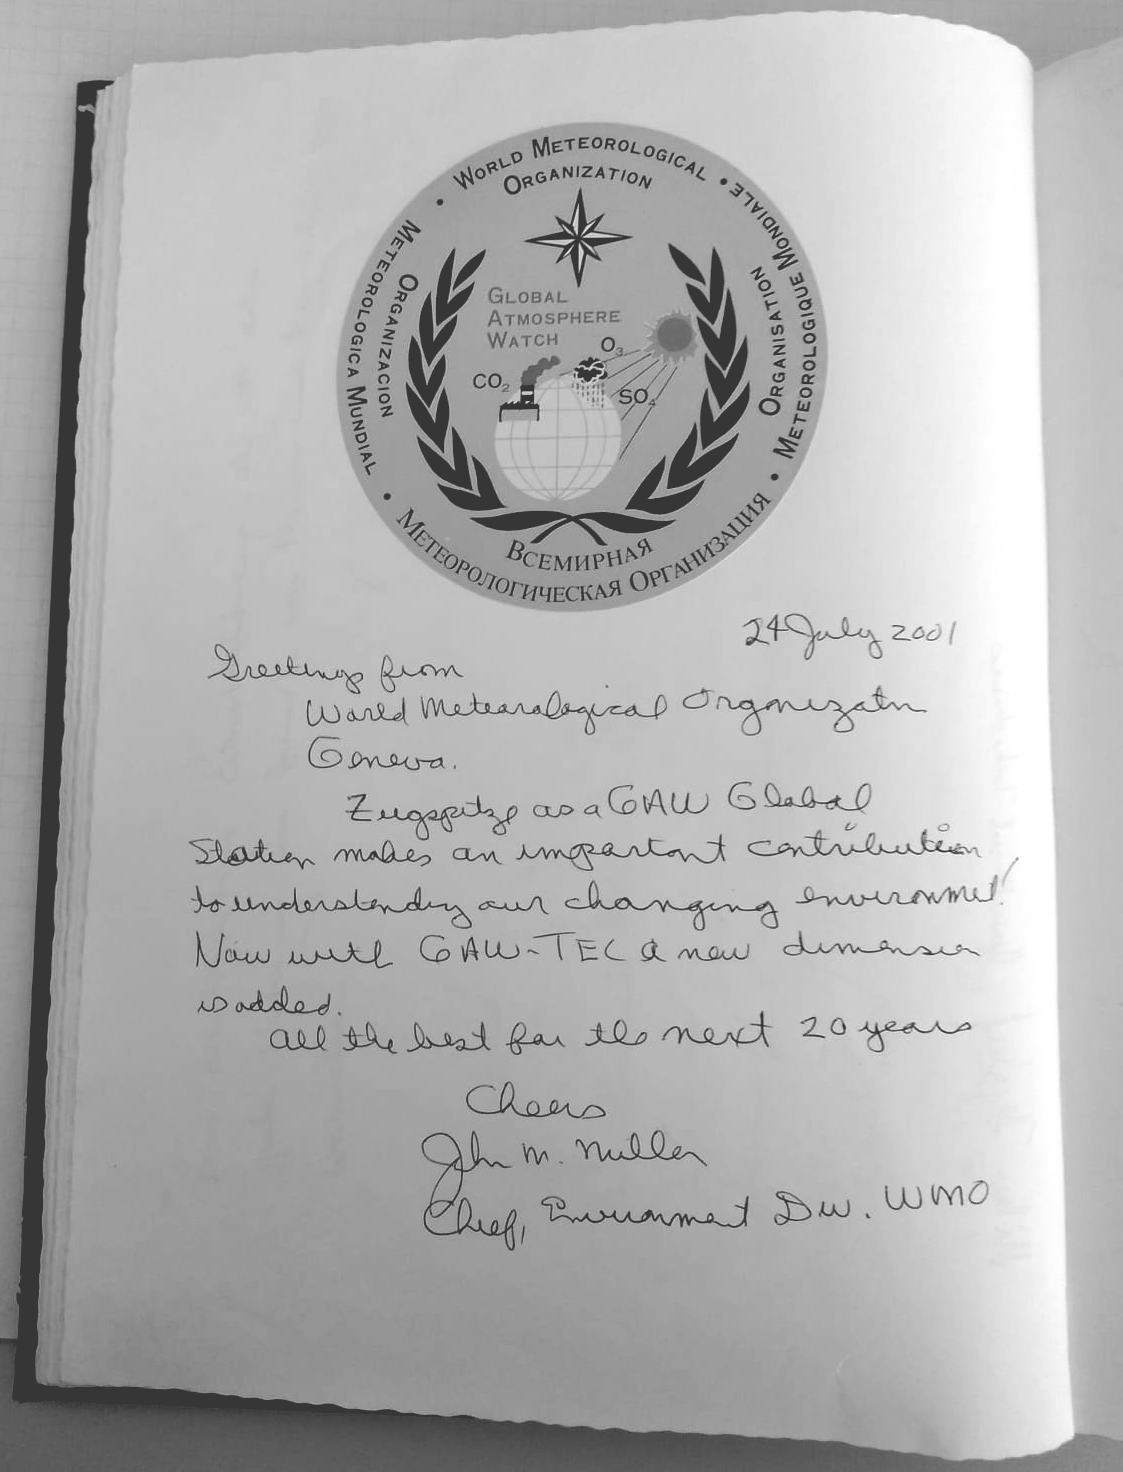 WORLD METEOROLOGICAL
ORGANIZATION
ORGANISATION
METEOROLOGIQUE MONDIALE
ORGANIZACION
METEOROLOGICA MUNDIAL
ВСЕМИРНАЯ
МЕТЕОРОЛОГИЧЕСКАЯ ОРГАНИЗАЦИЯ
GLOBAL
ATMOSPHERE
WATCH
O₃
CO₂
SO₄
24 July 2001
Greetings from
World Meteorological Organizatn
Geneva.
Zugspitze as a GAW Global
Station makes an important contribution
to understanding our changing environment!
Now with GAW-TEC a new dimension
is added.
All the best for the next 20 years
Cheers
John M. Miller
Chief, Environment Div. WMO